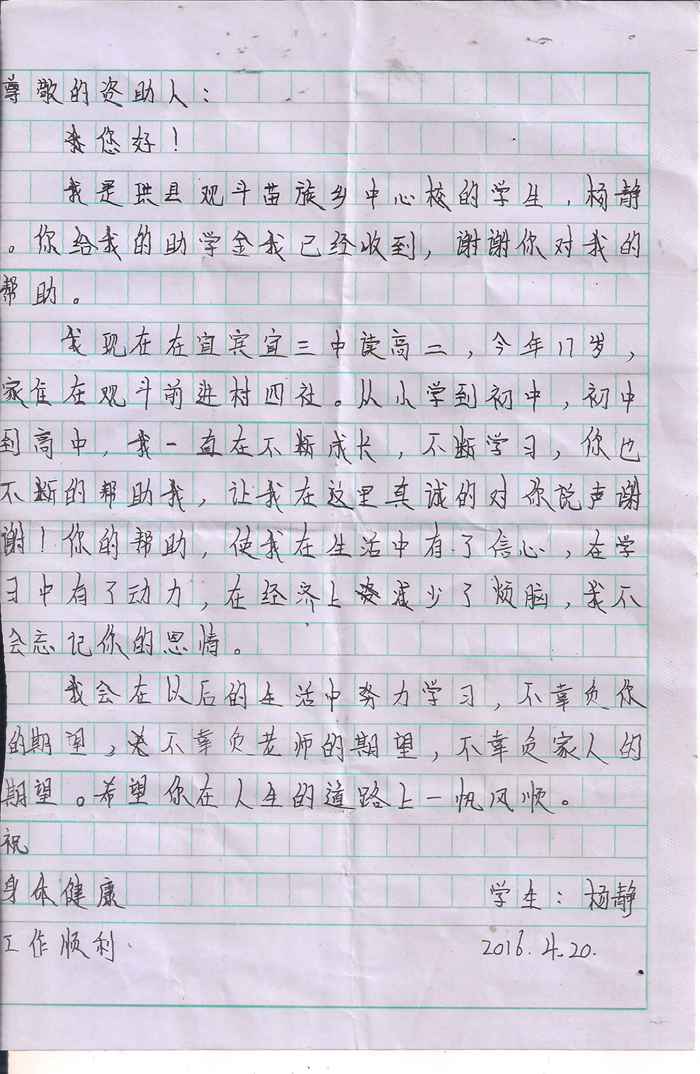 尊敬的资助人：
您好！
我是珙县观斗苗族乡中心校的学生，杨静
。你给我的助学金我已经收到，谢谢你对我的
帮助。
我现在在宜宾宜三中读高二，今年17岁，
家住在观斗前进村四社。从小学到初中，初中
到高中，我一直在不断成长，不断学习，你也
不断的帮助我，让我在这里真诚的对你说声谢
谢！你的帮助，使我在生活中有了信心，在学
习中有了动力，在经济上减少了烦脑，我不
会忘记你的恩情。
我会在以后的生活中努力学习，不辜负你
的期望，不辜负老师的期望，不辜负家人的
期望。希望你在人生的道路上一帆风顺。
祝
身体健康 学生：杨静
工作顺利. 2016.4.20.